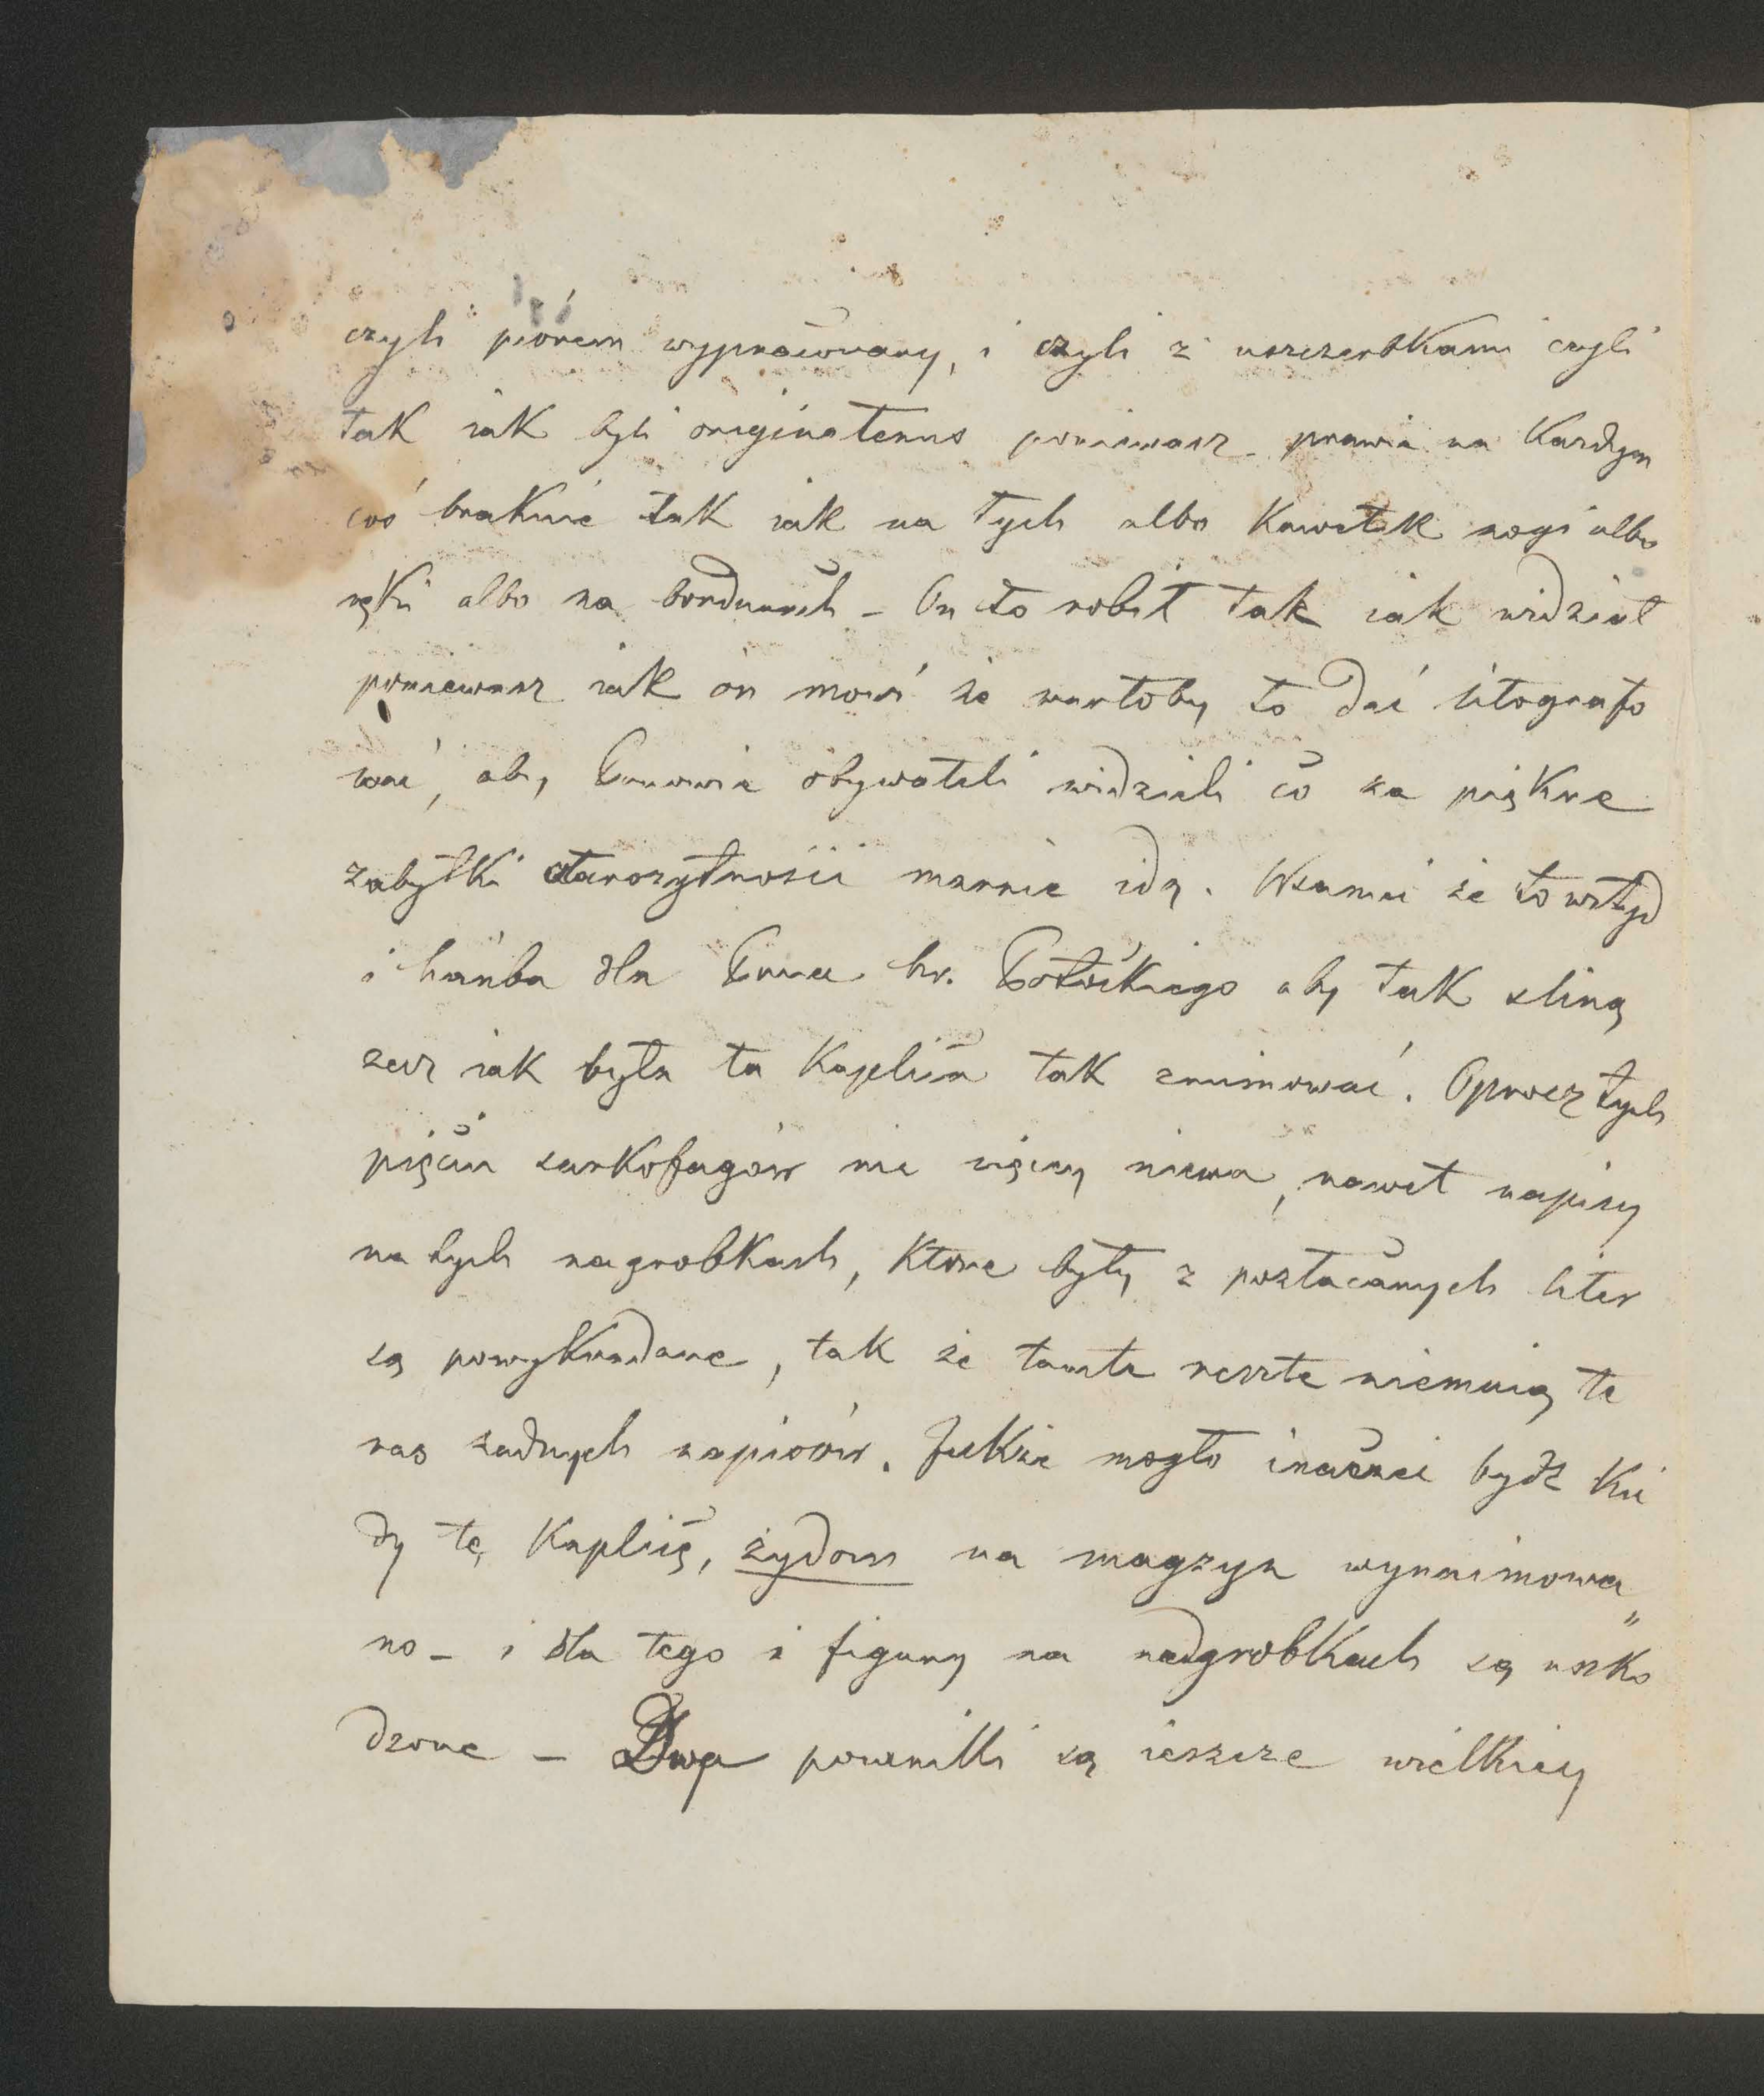 czyli piórem wypracowany, i czyli z uszczerbkami czyli
tak iak byli originatenus poniewasz prawie na każdym
coś braknie tak iak na tych albo kawałek nogi albo
ręki albo na bordurach – On to robił tak iak widział
poniewasz iak ón mówi że wartoby to dać litografo
wać, aby Panowie obywateli widzieli co za piękne
zabytki starożytności marnie idą. Wszamei że to wstyd
i hańba dla Pana hr. Potockiego aby tak śliną
rzecz iak była ta kaplica tak zruinować. Oprocz tych
pięciu sarkofagów nic więcy niema, nawet napisy
na tych nagrobkach, ktore były z pozłacanych liter
są powykradane, tak że tamte reszte niemaią te
ras żadnych napisów. Jakże mogło inaczei bydź kie
dy tę kaplicę, żydom na magzyn wynaimowa„
no – i dla tego i figury na nadgrobkach są uszko
dzone – Dwa powsnikli są ieszcze wielkiey